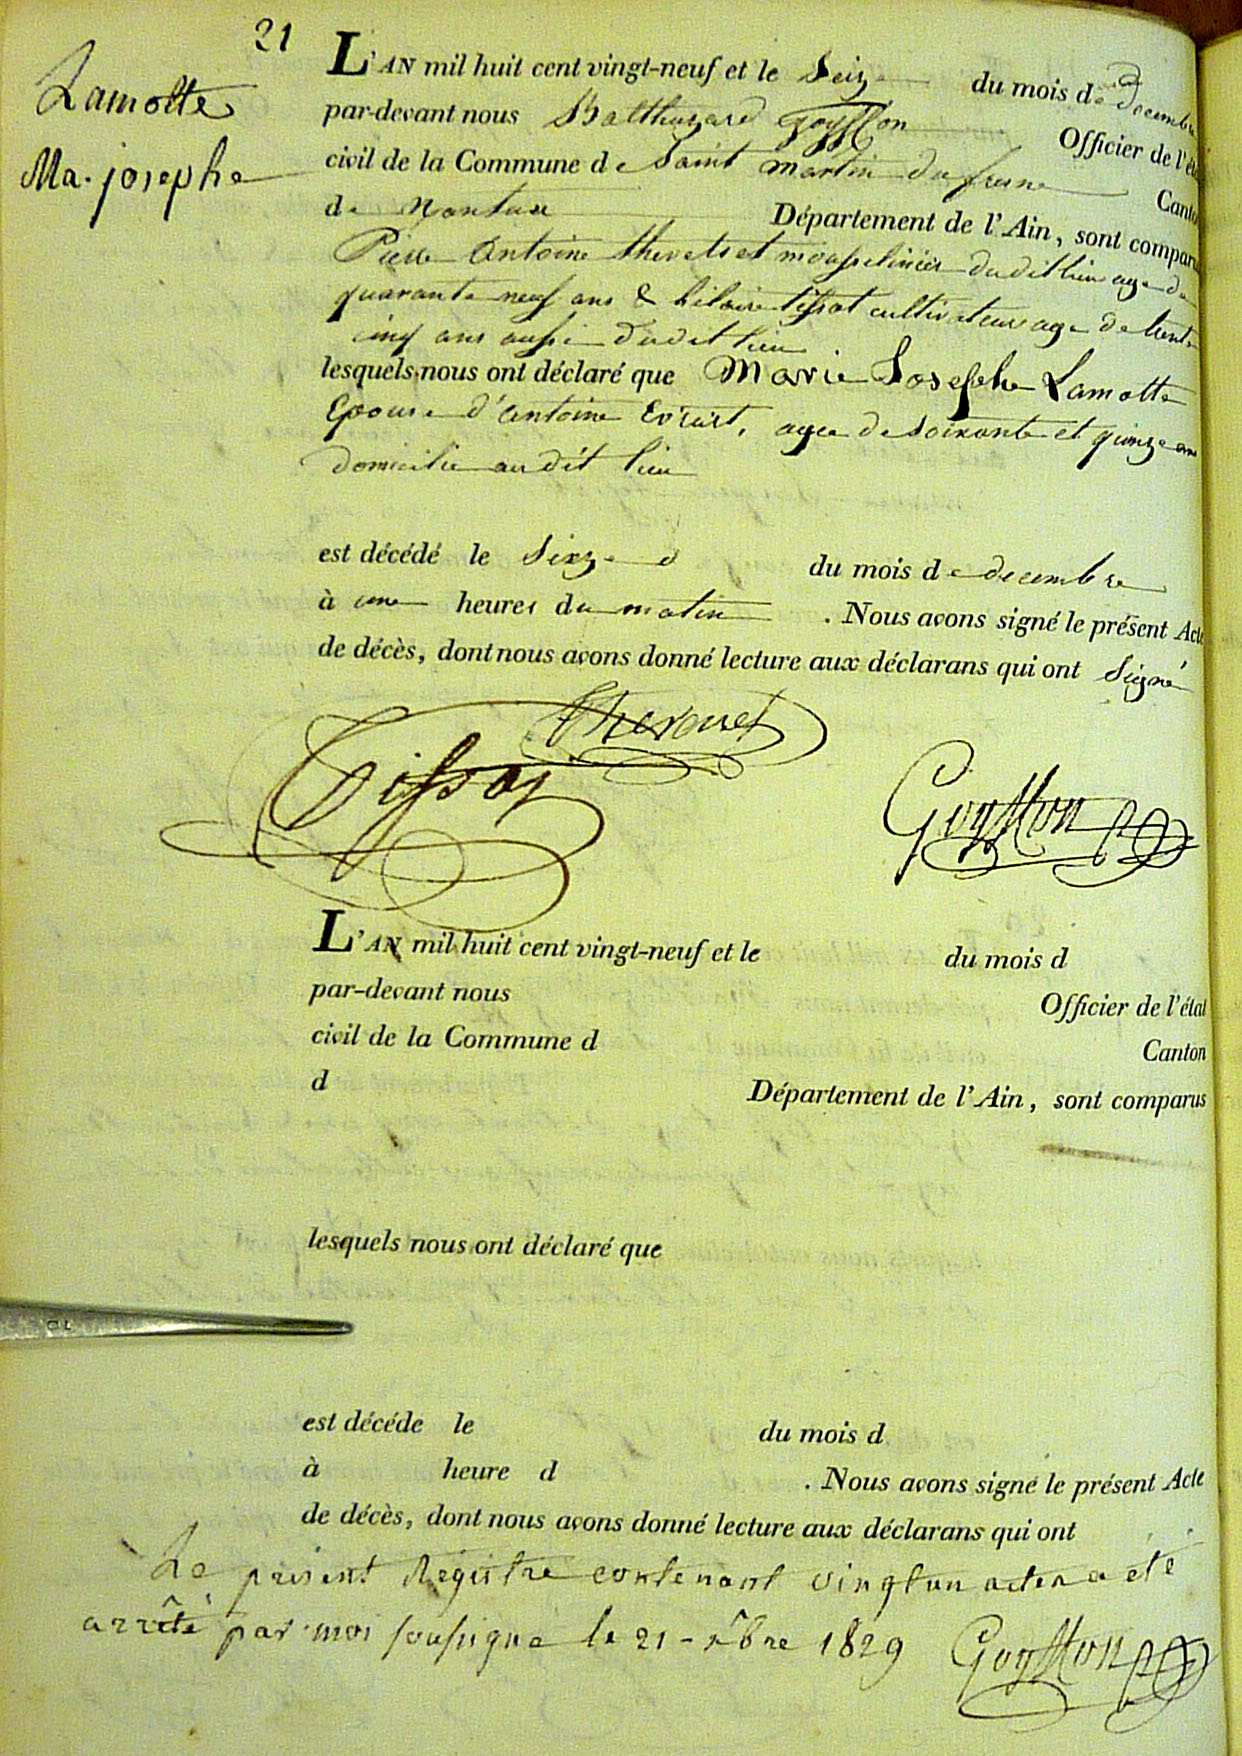 21
Lamotte
Ma. josephe
L'AN mil huit cent vingt-neuf et le Seize du mois de Decembre
par-devant nous Balthazard Goyffon Officier de l'état
civil de la Commune de Saint martin du fresne Canton
de Nantua Département de l'Ain, sont comparus
Pierre Antoine mousselinier dudit lieu age de
quarante neuf ans & hilaire tissot cultivateur age de trente
cinq ans aussi dudit lieu
lesquels nous ont déclaré que Marie Josephe Lamotte
Epouse d'antoine Evrard, agee de soixante et quinze ans
domicilie audit lieu
est décédé le Seize du mois de decembre
à une heures du matin . Nous avons signé le présent Acte
de décès, dont nous avons donné lecture aux déclarans qui ont Signé
Thevenet
Tissot
Goyffon
L'AN mil huit cent vingt-neuf et le du mois d
par-devant nous Officier de l'état
civil de la Commune d Canton
d Département de l'Ain, sont comparus
lesquels nous ont déclaré que
est décédé le du mois d
à heure d . Nous avons signé le présent Acte
de décès, dont nous avons donné lecture aux déclarans qui ont
Le présent Registre contenant vingt un actes a été
arrêté par moi soussigné le 21 - Xbre 1829 Goyffon